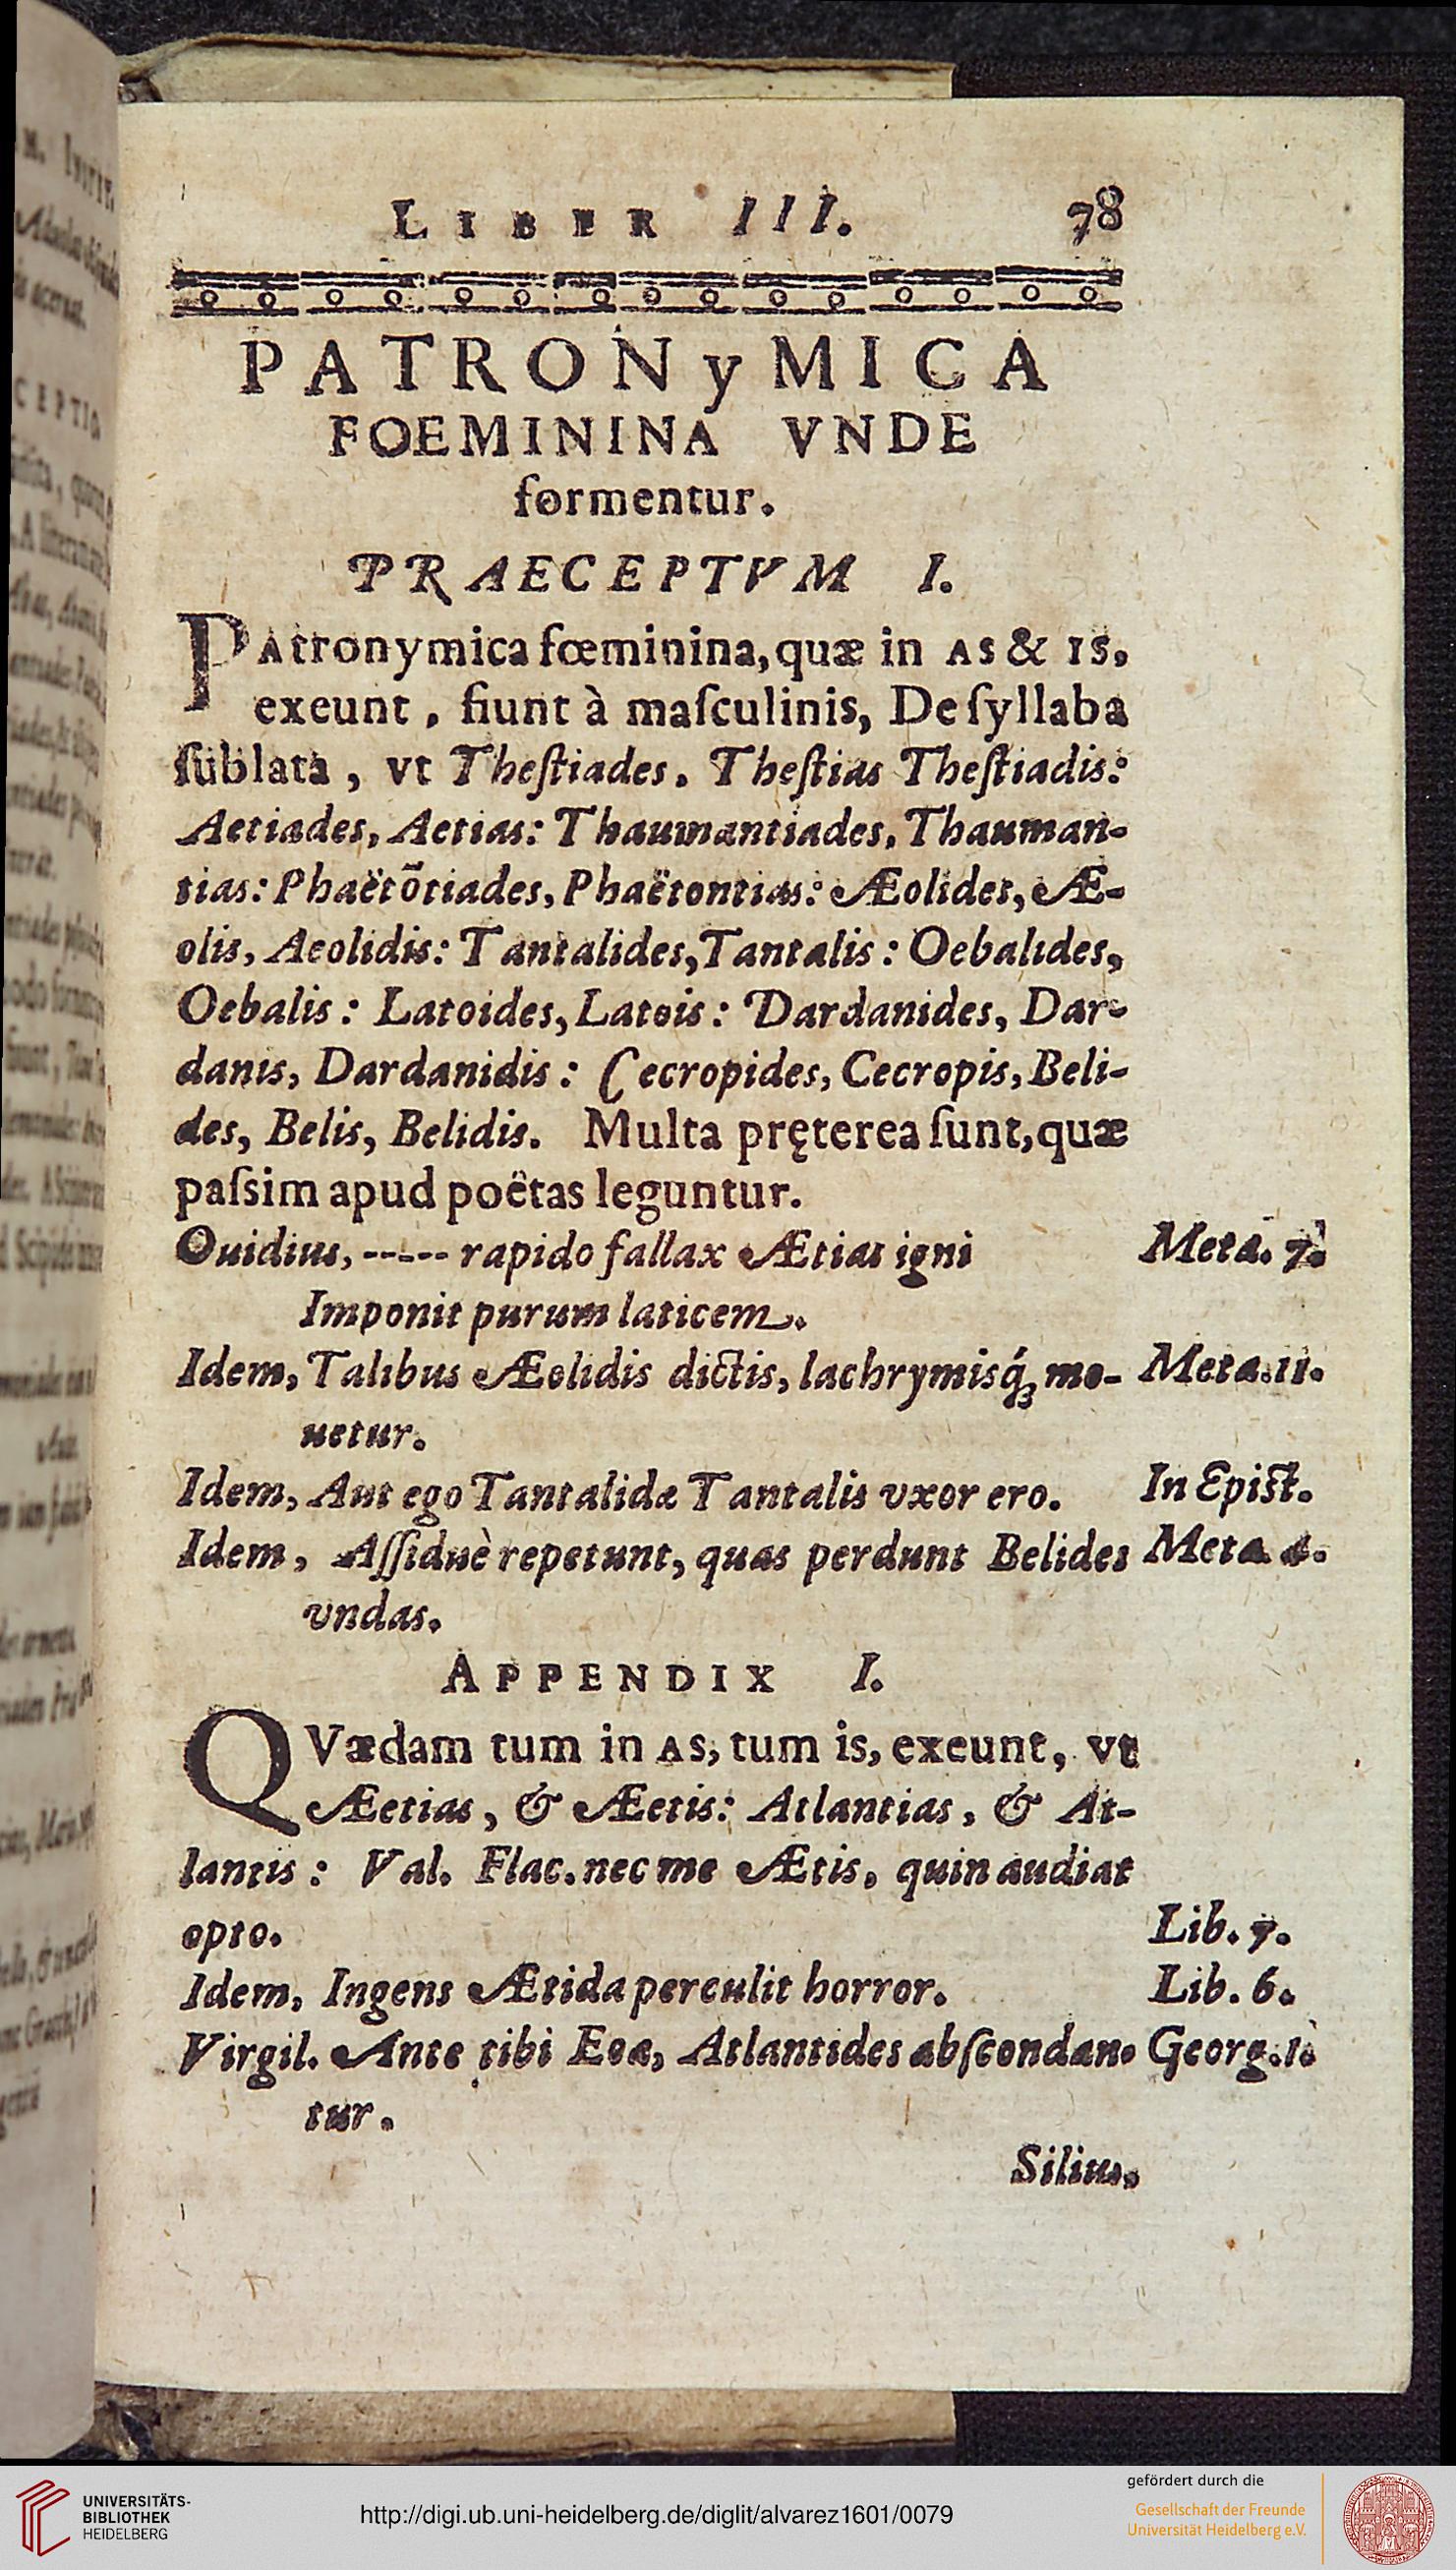 LIBER III. 78
PATRONyMICA
FOEMININA VNDE
formentur.
PRAECEPTVM I.
PAtronymica fœminina, quæ in AS & IS,
exeunt, fiunt à maſculinis, De ſyllaba
ſublata, vt Theſtiades, Theſtias Theſtiadis:
Aetiades, Aetias: Thaumantiades, Thauman-
tias: Phaëtõtiades, Phaëtontias: Æolides, Æ-
olis, Aeolidis: Tantalides, Tantalis: Oebalides,
Oebalis: Latoides, Latois: Dardanides, Dar-
danis, Dardanidis: Cecropides, Cecropis, Beli-
des, Belis, Belidis. Multa pręterea ſunt, quæ
paſsim apud poëtas leguntur.
Ouidius, ----- rapido fallax Ætias igni Meta. 7.
Imponit purum laticem.
Idem, Talibus Æolidis dictis, lachrymisq́; mo- Meta. 11.
uetur.
Idem, Aut ego Tantalidæ Tantalis vxor ero. In Epiſt.
Idem, Aſſiduè repetunt, quas perdunt Belides Meta. 4.
vndas.
APPENDIX I.
QVædam tum in AS, tum is, exeunt, vt
Æetias, & Æetis: Atlantias, & At-
lantis: Val. Flac. nec me Ætis, quin audiat
opto. Lib. 7.
Idem, Ingens Ætida perculit horror. Lib. 6.
Virgil. Ante tibi Eoæ, Atlantides abſcondan- Georg. 1.
tur.
Silius,
UNIVERSITÄTS-
BIBLIOTHEK
HEIDELBERG
http://digi.ub.uni-heidelberg.de/diglit/alvarez1601/0079
gefördert durch die
Gesellschaft der Freunde
Universität Heidelberg e.V.